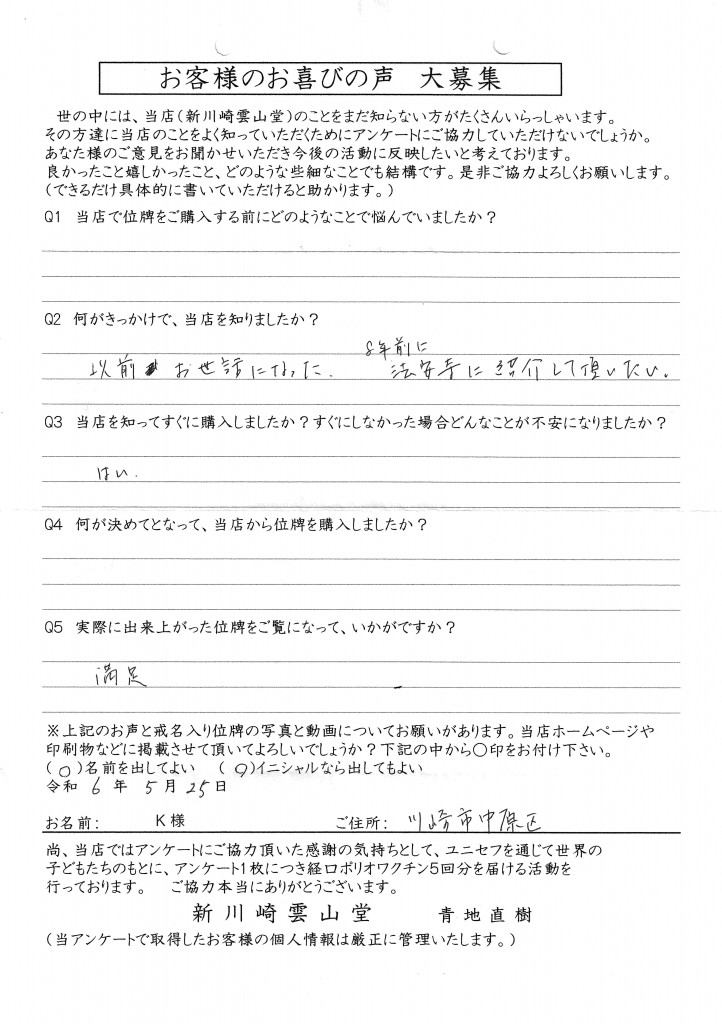 お客様のお喜びの声 大募集
世の中には、当店(新川崎雲山堂)のことをまだ知らない方がたくさんいらっしゃいます。
その方達に当店のことをよく知っていただくためにアンケートにご協力していただけないでしょうか。
あなた様のご意見をお聞かせいただき今後の活動に反映したいと考えております。
良かったこと嬉しかったこと、どのような些細なことでも結構です。是非ご協力よろしくお願いします。
(できるだけ具体的に書いていただけると助かります。)
Q1 当店で位牌をご購入する前にどのようなことで悩んでいましたか?
Q2 何がきっかけで、当店を知りましたか?
8年前に
以前 お世話になった. 法安寺に紹介して頂いたい。
Q3 当店を知ってすぐに購入しましたか?すぐにしなかった場合どんなことが不安になりましたか?
はい.
Q4 何が決めてとなって、当店から位牌を購入しましたか?
Q5 実際に出来上がった位牌をご覧になって、いかがですか?
満足
※上記のお声と戒名入り位牌の写真と動画についてお願いがあります。当店ホームページや
印刷物などに掲載させて頂いてよろしいでしょうか?下記の中から○印をお付け下さい。
(○)名前を出してよい (○)イニシャルなら出してもよい
令和 6 年 5 月 25 日
お名前: K様 ご住所: 川崎市中原区
尚、当店ではアンケートにご協力頂いた感謝の気持ちとして、ユニセフを通じて世界の
子どもたちのもとに、アンケート1枚につき経口ポリオワクチン5回分を届ける活動を
行っております。 ご協力本当にありがとうございます。
新川崎雲山堂 青地直樹
(当アンケートで取得したお客様の個人情報は厳正に管理いたします。)